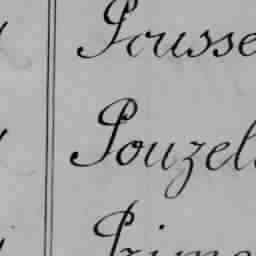 Pousse
Pouzel
Prime